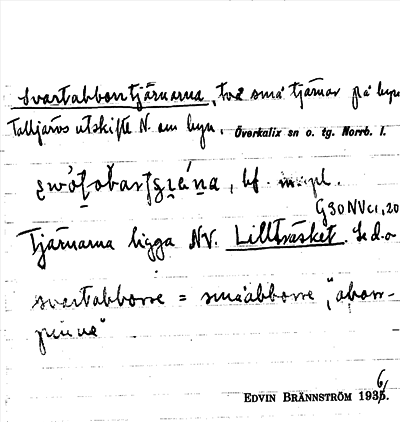 Svartabborrtjärnarna, två små tjärnar på byn
Talljärvs utskifte N. om byn. Överkalix sn o. tg. Norrb. l.
bf. m. pl.
G30NVc1,20
Tjärnarna ligga NV. Lillträsket. Se d.o
svartabborre = småabborre, "abborr-
pinne"
EDVIN BRÄNNSTRÖM 1936.